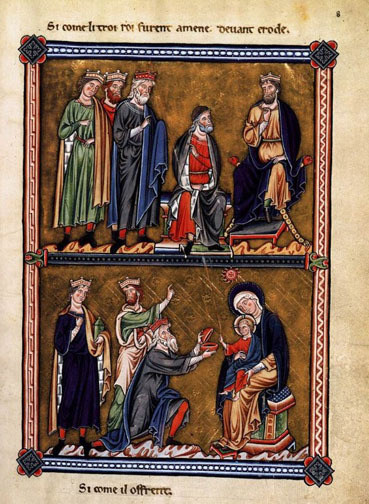 Si come li troi roi furent amene devant erode.
8
Si come il offrent.